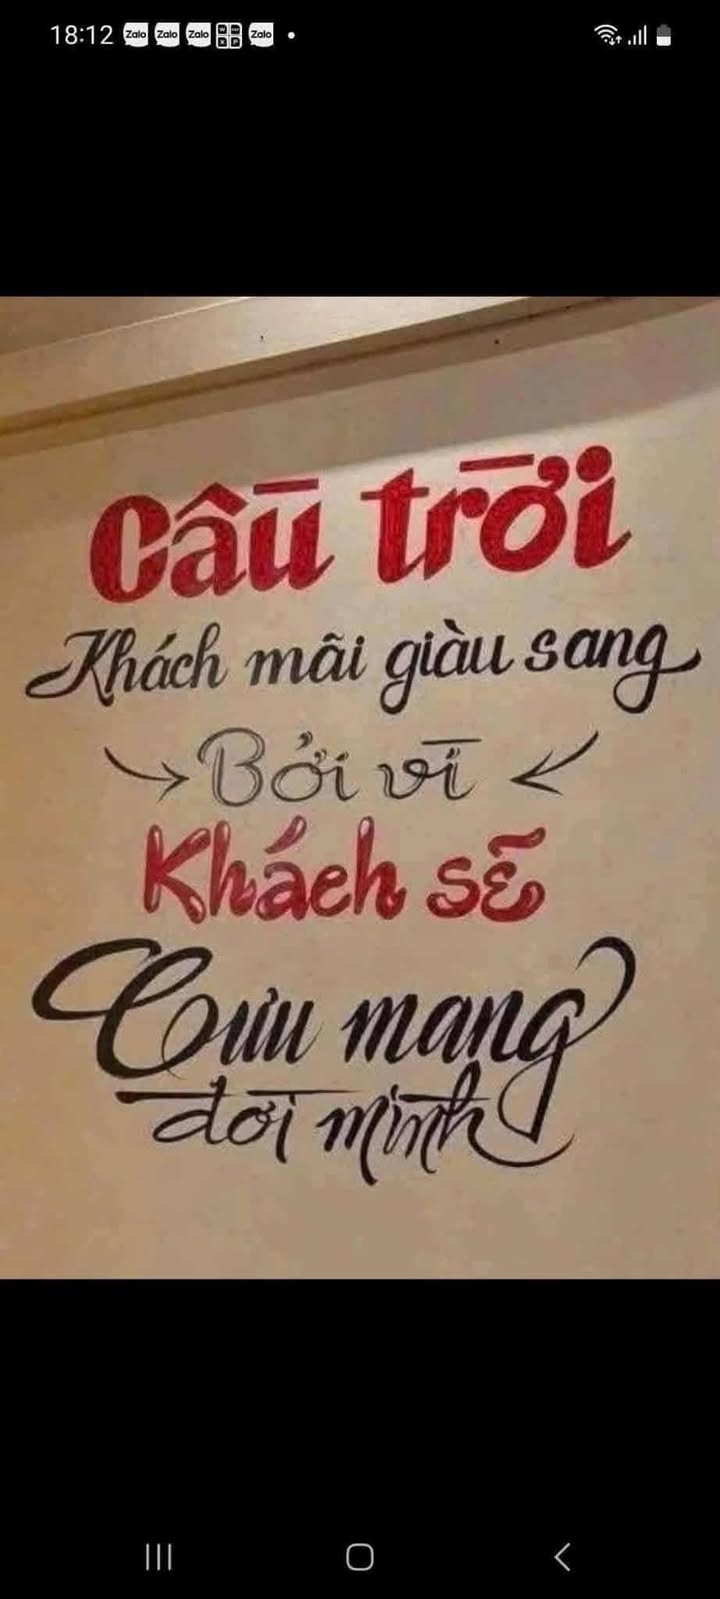 18:12 Zalo Zalo Zalo Zalo
Cầu trời
Khách mãi giàu sang
Bởi vì
Khách sẽ
Cưu mang
đời mình